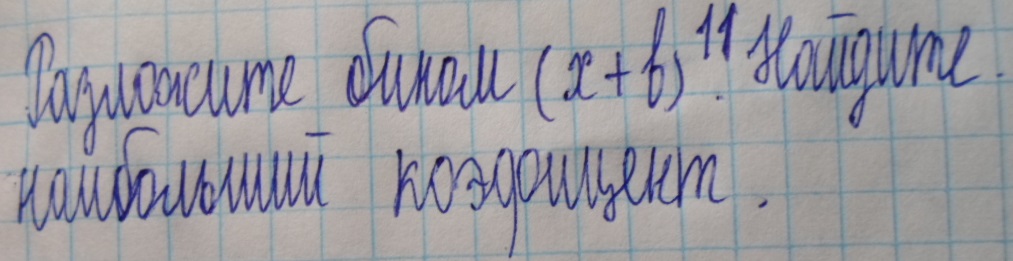 Разложите бином (x+b)¹¹. Найдите.
наибольший коэффициент.